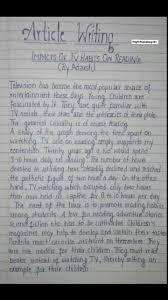 Article Writing
Impacts of TV Habits on Reading
(By Adarsh)
Television has become the most popular source of
entertainment these days. Young Children are
fascinated by it. They are quite familiar with
TV serials, their stars and the intricacies of their plots.
The general casualty is of course reading.
A study of the graph showing the time spent on
watching TV, sale on reading amply supports my
contention. Twenty years ago a pupil would spend
3-10 hours daily on reading. The number of hours
devoted to watching have steadily declined and touched
the pathetic figure of two hours a day. On the other
hand, TV watching which occupied only two hours
then has now to caption for 8 to 10 hours per day.
The need of the hour is to promote reading habits
among students. A love for reading adventure stories
and fiction etc. has to be cultivated. Children's
magazines may help to develop and sustain their
Parents must exercise restraint on themselves. They
are role models for their children. They must read
instead of watching TV, thereby setting an
example for their children.